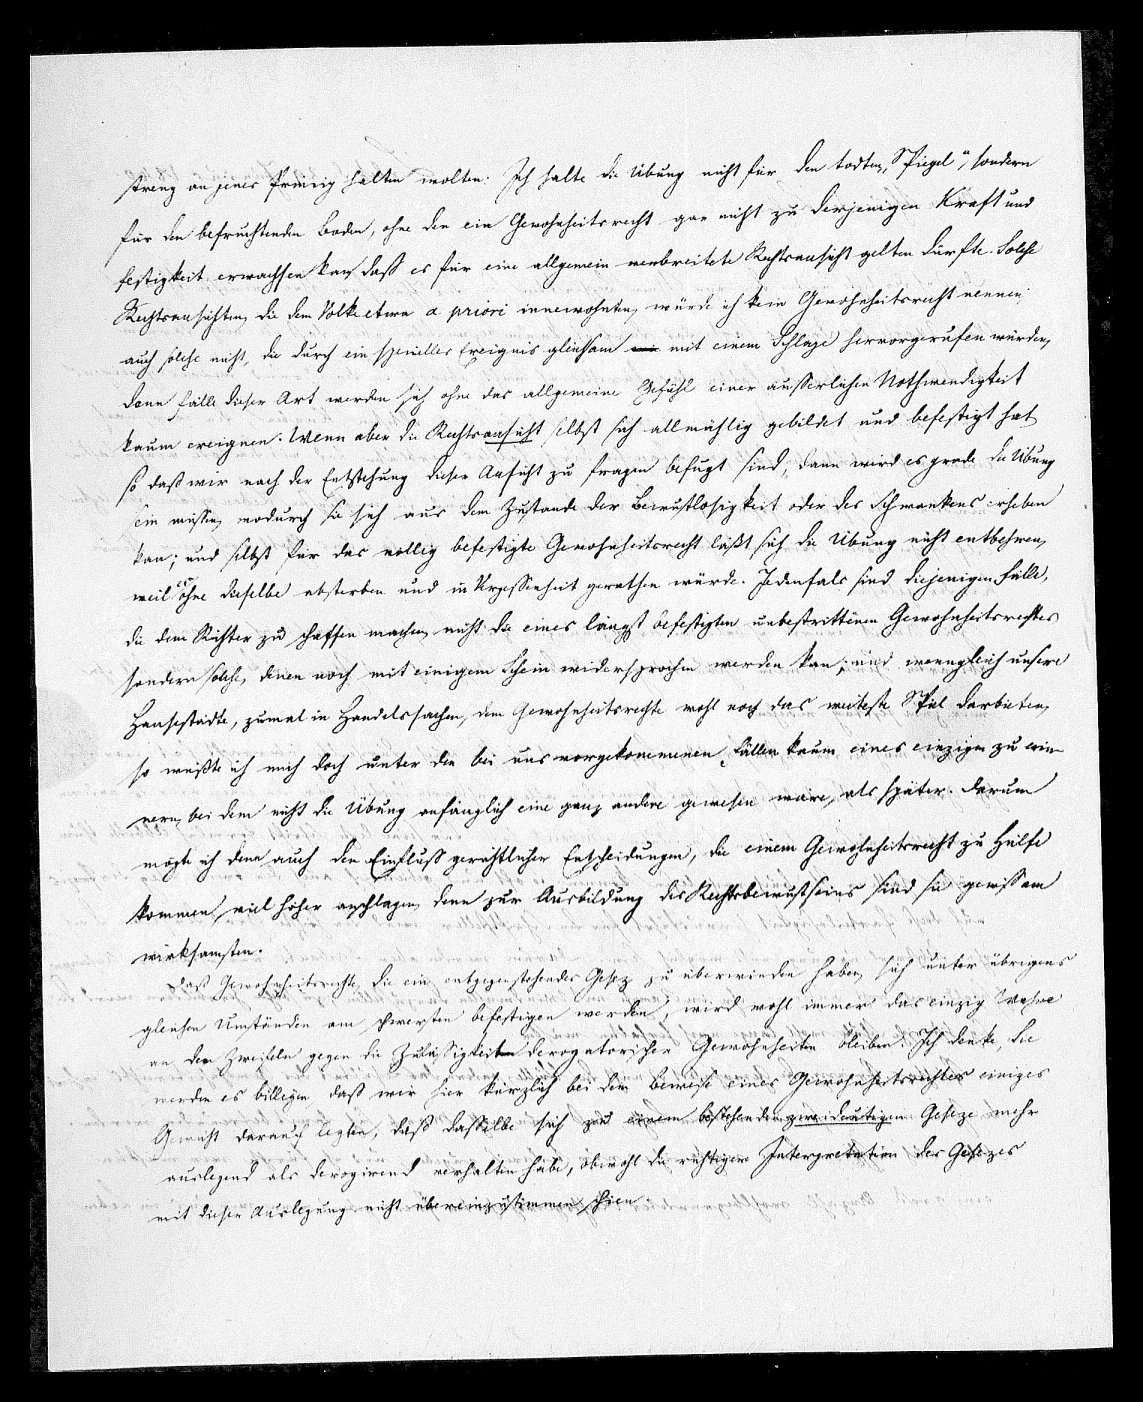 streng an jenes Prinzip halten wollten. Ich halte die Übung nicht für den todten „Spiegel“, sondern
für den befruchtenden Boden, ohne den ein Gewohnheitsrecht gar nicht zu derjenigen Kraft und
festigkeit erwachsen kan, daß es für eine allgemein verbreitete Rechtsansicht gelten dürfte. Solche
Rechtsansichten, die dem Volke etwa a priori innewohnten, würde ich kein Gewohnheitsrecht nennen
auch solche nicht, die durch ein spezielles Ereignis gleichsam mit einem Schlage hervorgerufen würden,
denn fälle dieser Art werden sich ohne das allgemeine Gefühl einer äusserlichen Nothwendigkeit
kaum ereignen. Wenn aber die Rechtsansicht selbst sich allmählig gebildet und befestigt hat
so daß wir nach der Entstehung dieser Ansicht zu fragen befugt sind, dann wird es grade die Übung
sein müssen, wodurch sie sich aus dem Zustande der Bewustlosigkeit oder des Schwankens erheben
kan; und selbst für das völlig befestigte Gewohnheitsrecht läßt sich die Übung nicht entbehren,
weil es ohne dieselbe absterben und in Vergessenheit gerathen würde. Jedenfals sind diejenigen Fälle,
die dem Richter zu schaffen machen, nicht die eines längst befestigten unbestrittenen Gewohnheitsrechtes
sondern solche, denen noch mit einigem Schein widersprochen werden kan; und wenngleich unsere
Hansestädte, zumal in Handelssachen, dem Gewohnheitsrechte wohl noch das weiteste Spiel darbieten,
so wüßte ich mich doch unter den bei uns vorgekommenen Fällen kaum eines einzigen zu erin-
nern, bei dem nicht die Übung anfänglich eine ganz andere gewesen wäre, als später. Darum
mögte ich denn auch den Einfluß gerichtlicher Entscheidungen, die einem Gewohnheitsrecht zu Hülfe
kommen, viel höher anschlagen, denn zur Ausbildung des Rechtsbewustseins sind sie gewiss am
wirksamsten.
Daß Gewohnheitsrechte, die ein entgegenstehendes Gesez zu überwinden haben, sich unter übrigens
gleichen Umständen am schwersten befestigen werden, wird wohl immer das einzig Wahre
an den Zweifeln gegen die Zulässigkeit derogatorischer Gewohnheiten bleiben. Ich denke, Sie
werden es billigen, daß wir hier kürzlich bei dem Beweise eines Gewohnheitsrechtes einiges
Gewicht darauf legten, daß dasselbe sich zu einem bestehenden zweideutigen Geseze mehr
auslegend als derogirend verhalten habe, obwohl die richtigere Interpretation des Gesezes
mit dieser Auslegung nicht übereinzustimmen schien.